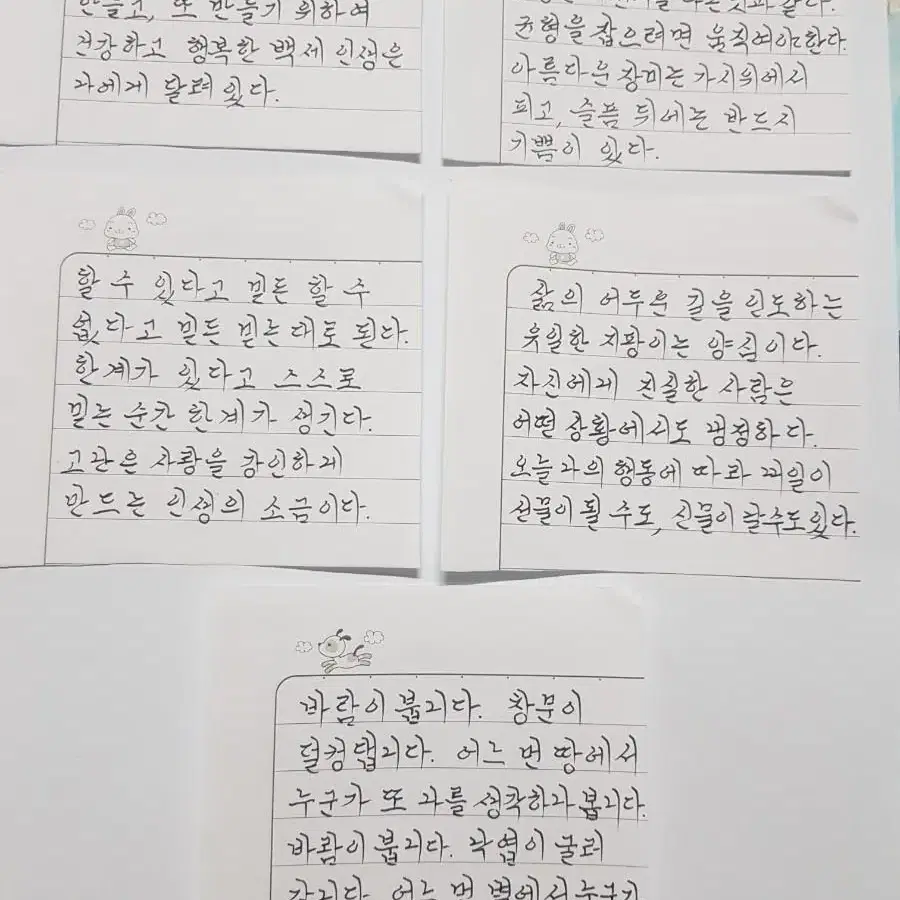 만들고, 또 만들기 위하여
건강하고 행복한 백세 인생은
나에게 달려 있다.
균형을 잡으려면 움직여야한다.
아름다운 장미는 가시위에서
피고, 슬픔 뒤에는 반드시
기쁨이 있다.
할 수 있다고 믿든 할 수
없다고 믿든 믿는대로 된다.
한계가 있다고 스스로
믿는 순간 한계가 생긴다.
고난은 사람을 강인하게
만드는 인생의 소금이다.
삶의 어두운 길을 인도하는
유일한 지팡이는 양심이다.
자신에게 진실한 사람은
어떤 상황에서도 냉정하다.
오늘 나의 행동에 따라 내일이
선물이 될 수도, 신물이 날수도있다.
바람이 붑니다. 창문이
덜컹댑니다. 어느 먼 땅에서
누군가 또 나를 생각하나 봅니다.
바람이 붑니다. 낙엽이 굴러
갑니다. 어느 먼 별에서 누군가